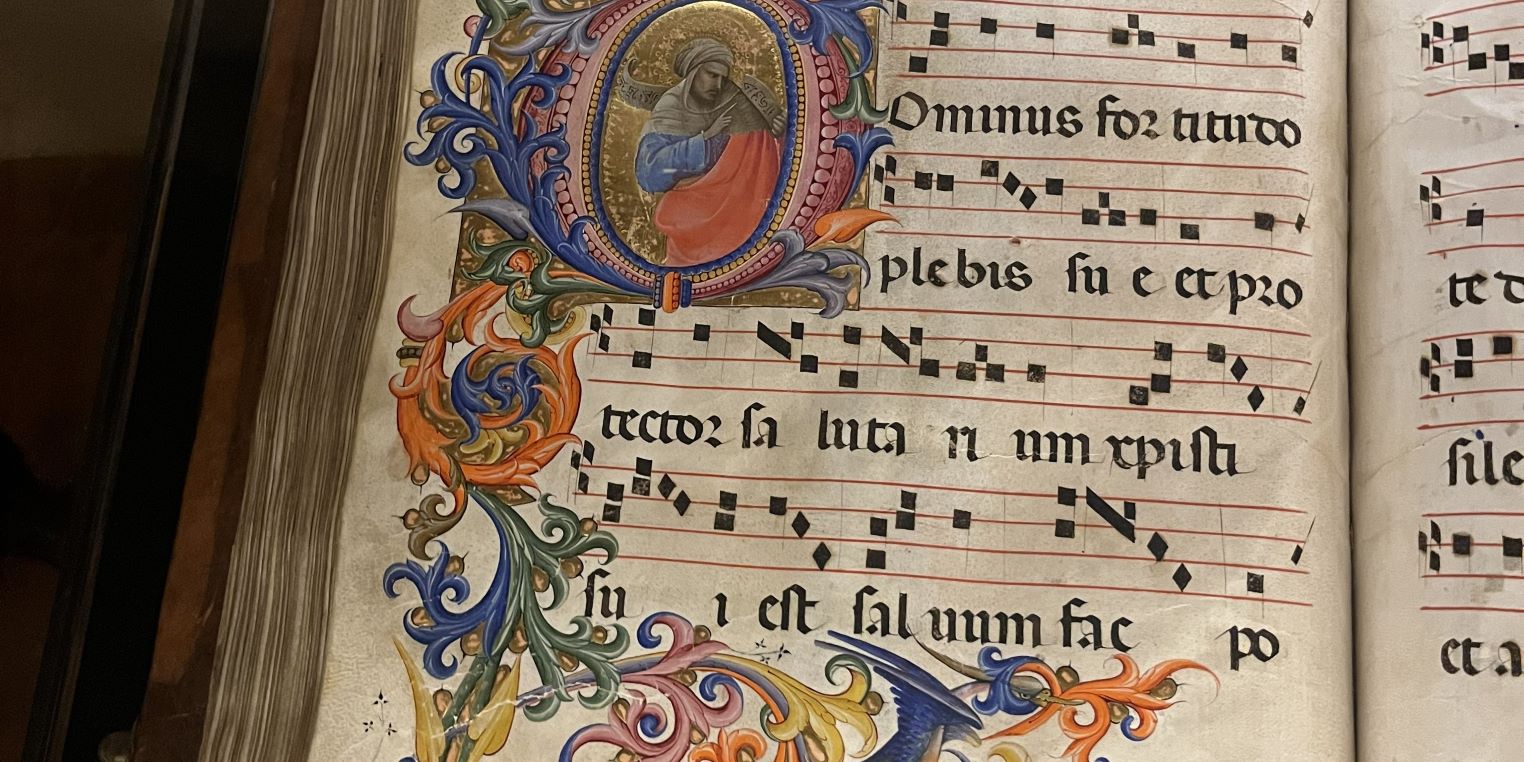 Ominus for titudo
plebis su e et pro
tector sa luta ri um xpisti
su i est sal uum fac po
te
sile
et a